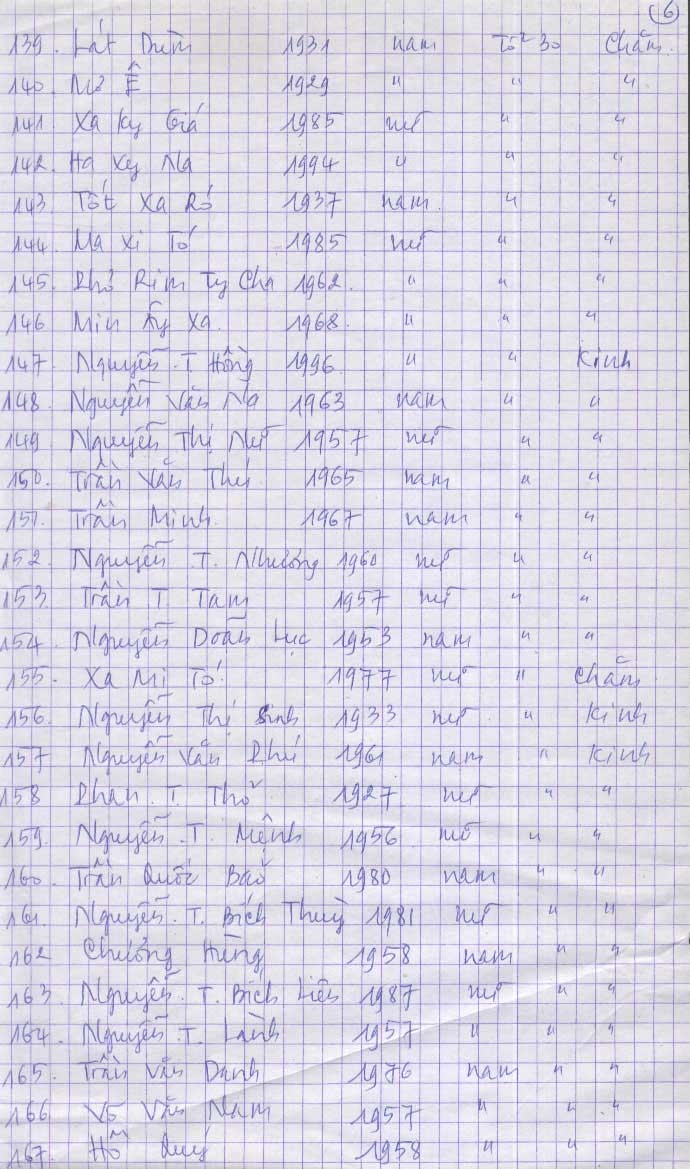 6
139. Lát Diêm 1931 nam Tổ 30 Chăm.
140. Mơ Ê 1929 " " "
141. Xa Ky Giá 1985 nữ " "
142. Ha Xy Na 1994 " " "
143. Tốt Xa Ró 1937 nam. " "
144. Ma Xi Tố 1985 nữ " "
145. Phô Rim Ty Cha 1962. " " "
146 Min Ky Xa. 1968. " " "
147. Nguyễn. T. Hồng 1996 " " Kinh
148. Nguyễn Văn Na 1963 nam " "
149. Nguyễn Thị Nữ 1957 nữ " "
150. Trần Văn Thú 1965 nam " "
151. Trần Minh. 1967 nam " "
152. Nguyễn T. Nhường 1960 nữ " "
153. Trần T Tam 1957 nữ " "
154. Nguyễn Doãn Lục 1953 nam " "
155. Xa Mi Tố. 1977 nữ " Chăm
156. Nguyễn Thị Sinh 1933 nữ " Kinh
157 Nguyễn Văn Phú 1961 nam " Kinh
158 Phan. T. Thổ 1927 nữ " "
159. Nguyễn. T. Mệnh 1956 nữ " "
160. Trần Quốc Bảo 1980 nam " "
161. Nguyễn. T. Bích Thuỷ 1981 nữ " "
162 Chương Hùng 1958 nam " "
163. Nguyễn. T. Bích Liên 1987 nữ " "
164. Nguyễn. T. Lành 1957 " " "
165. Trần Văn Danh 1976 nam " "
166 Võ Văn Nam 1957 " " "
167. Hồ Quý 1958 " " "